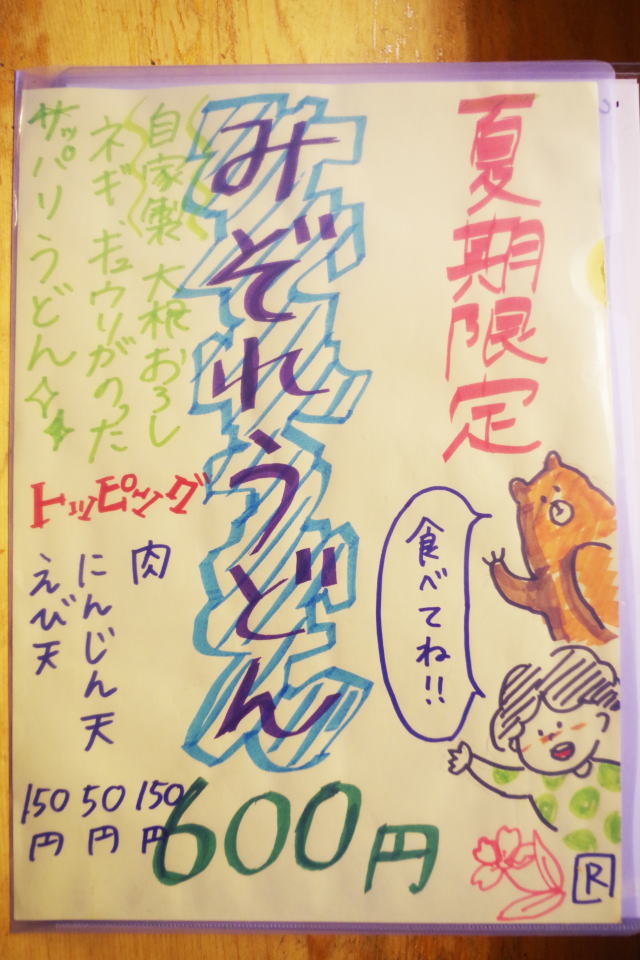 夏期限定
みぞれうどん
自家製 大根おろし
ネギ、キュウリがのった
サッパリうどん
トッピング
肉 150円
にんじん天 50円
えび天 150円
600円
食べてね!!
R